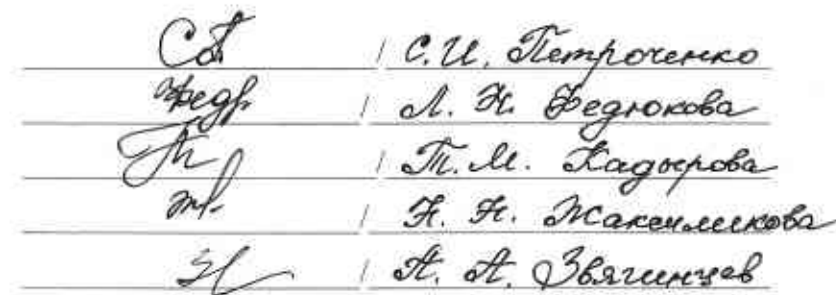 / С.И. Петроченко
/ Л. Н. Федюкова
/ Т.М. Кадырова
/ Н. Н. Жаксиликова
/ А. А. Звягинцев